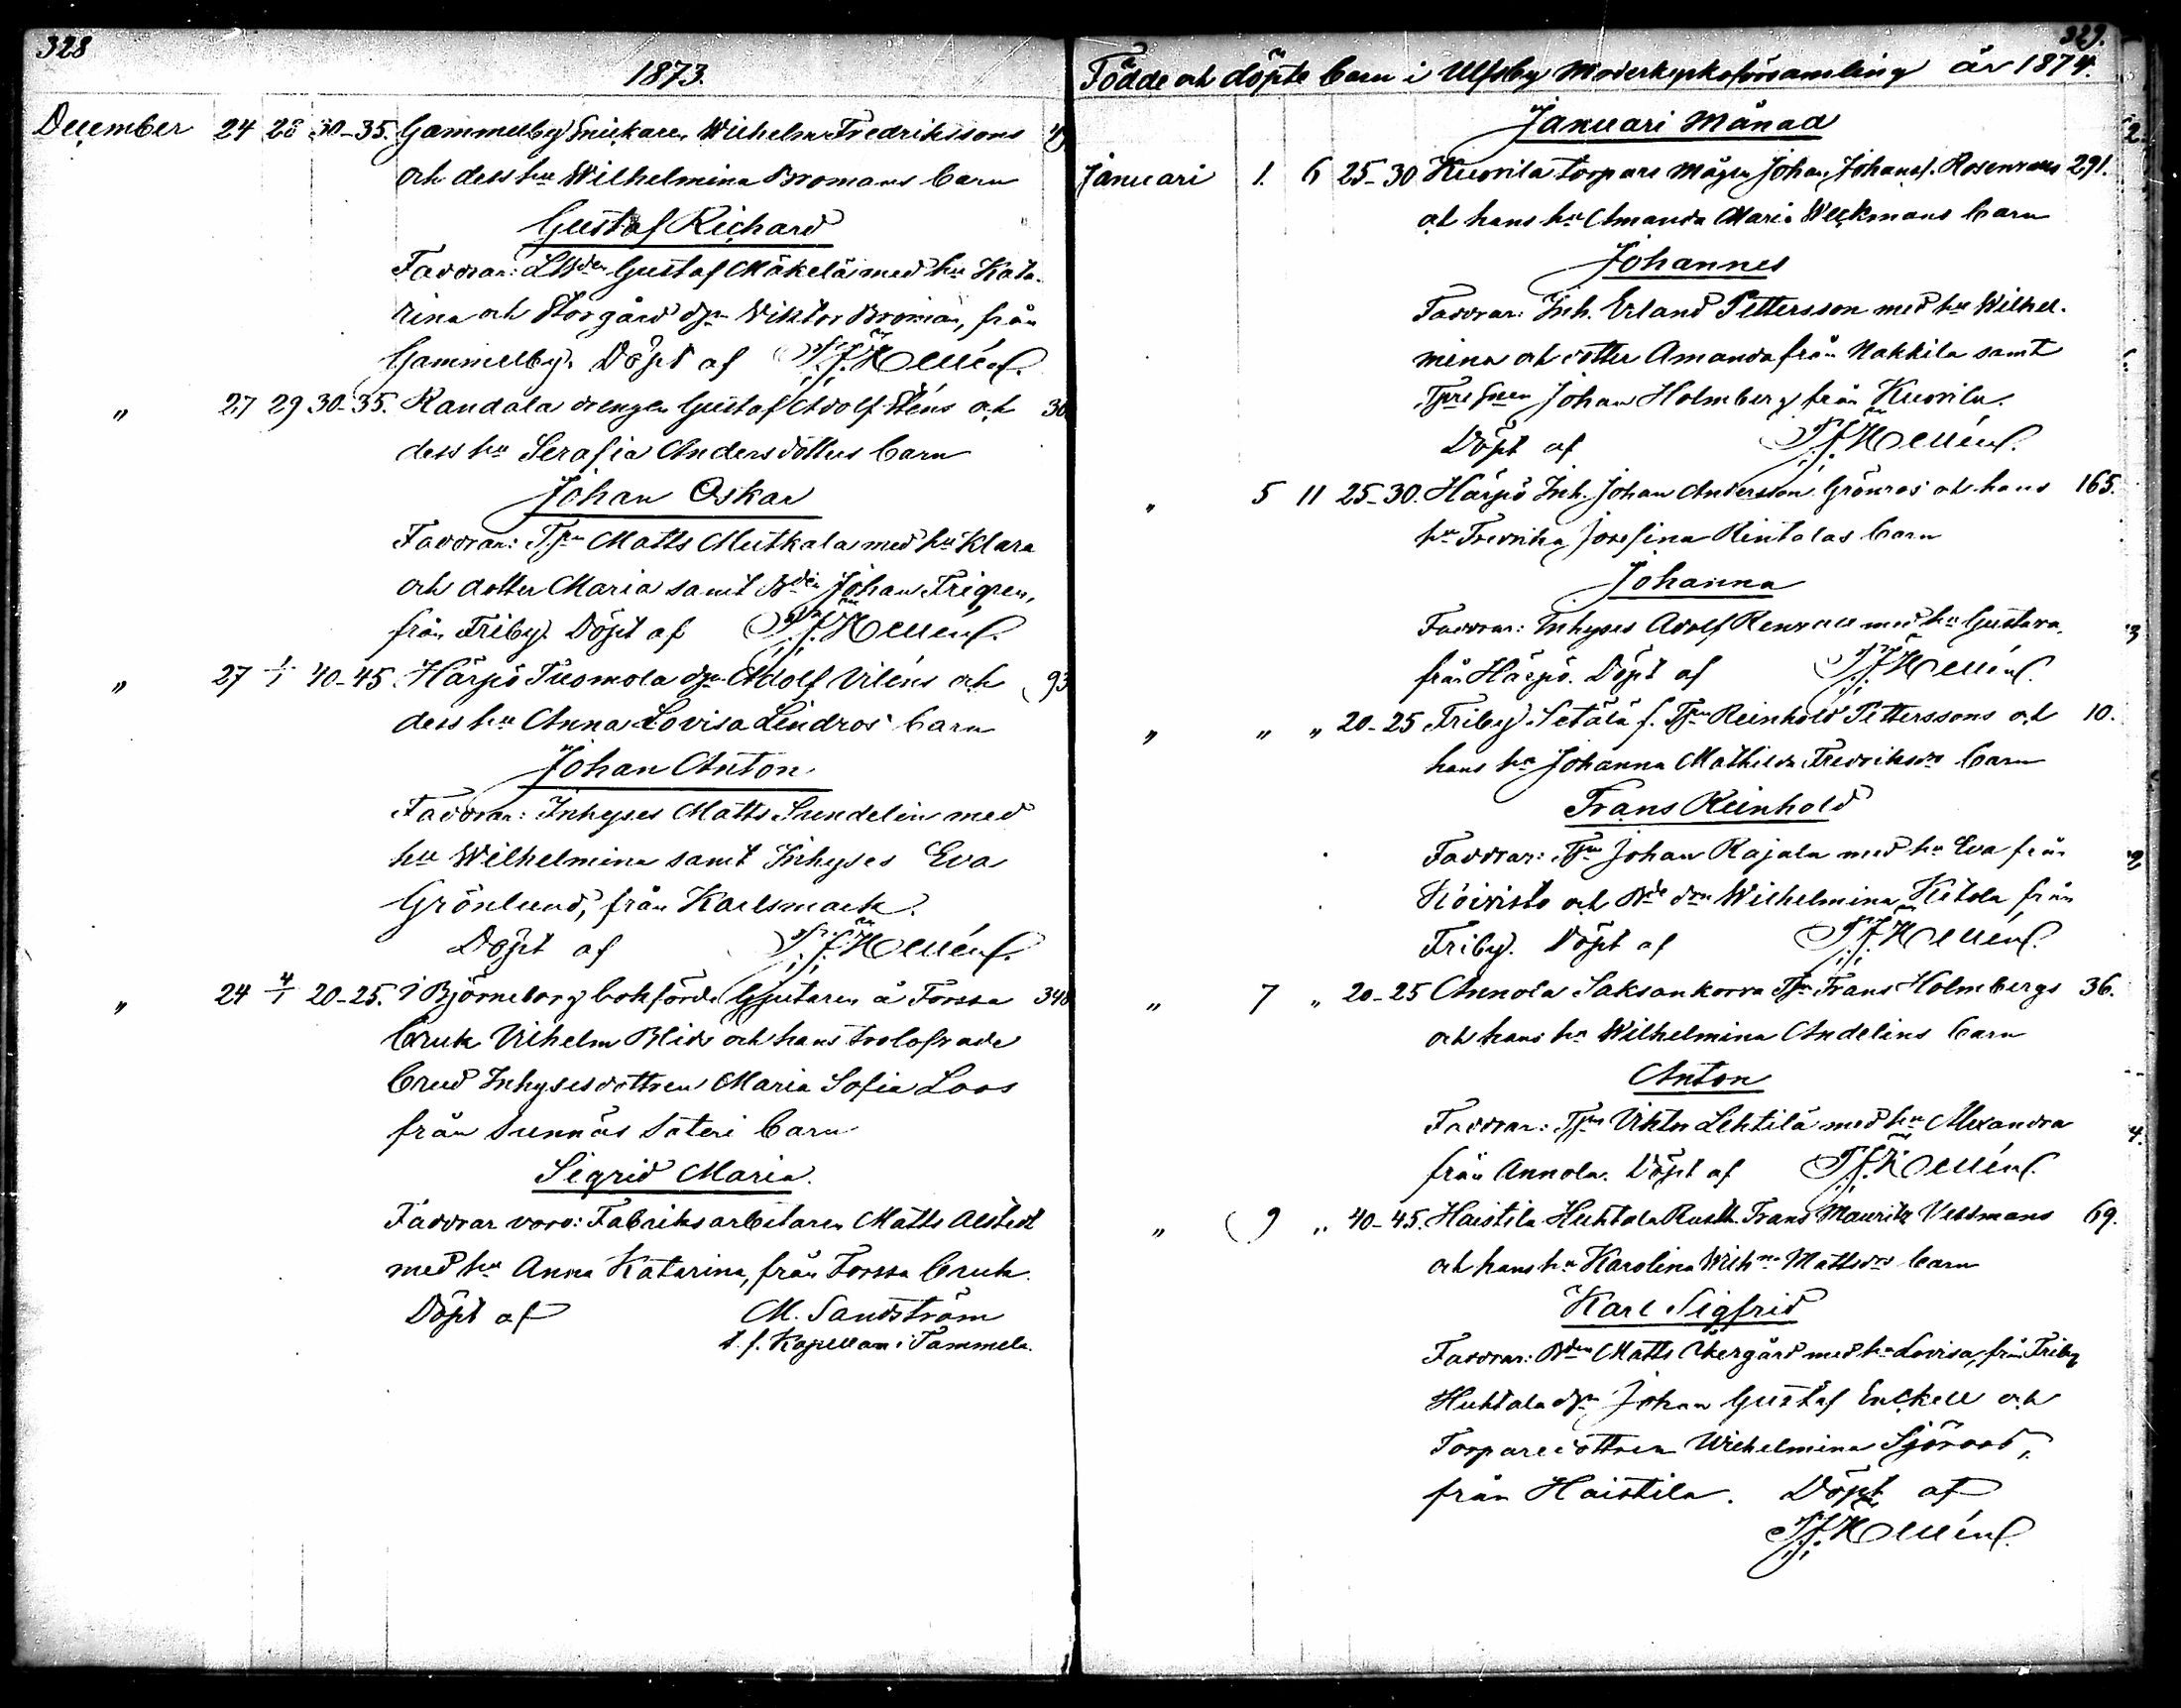 328
1873.
December 24 28 30-35. Gammelby Snickaren Wilhelm Fredrikssons
och dess hu Wilhelmina Bromans barn
Gustaf Richard
Faddrar: Gustaf Mäkelä med hu Kata-
rina och Storgård Viktor Broman, från
Gammelby. Döpt af
" 27 29 30-35. Randala drengen Gustaf Adolf Sténs och 30
dess hu Serafia Andersdotters barn
Johan Oskar
Faddrar: Tpn Matts Mutkala med hu Klara
och dotter Maria samt Bden Johan Frigren,
från Friby. Döpt af
" 27 1/1 40-45 Härpö Tuomola Adolf Viléns och 93
dess hu Anna Lovisa Lindros barn
Johan Anton
Faddrar: Inhyses Matts Sundelin med
hu Wilhelmina samt Inhyses Eva
Grönlund, från Karlsmark.
Döpt af
" 24 4/1 20-25. I Björneborg bokförde Gjutaren å Forssa 340
bruk Vilhelm Blid och hans trolofvade
brud Inhysesdottren Maria Sofia Loos
från Sunnäs Säteri barn
Sigrid Maria.
Faddrar voro: Fabriksarbetaren Matts Alstedt
med hu Anna Katarina, från Forssa bruk.
Döpt af M. Sandström
t. f. Kapellan i Tammela.
329.
Födde och döpte barn i Ulfsby Moderkyrkoförsamling år 1874.
Januari Månad
Januari 1. 6 25-30 Kuorila torpare mågen Johan Johansf. Rosenr 291.
och hans hu Amanda Maria Weckmans barn
Johannes
Faddrar: Inh. Erland Pettersson med hu Wilhel-
mina och dotter Amanda från Nakkila samt
Johan Holmberg från Kuorila.
Döpt af
" 5 11 25-30. Härpö Inh. Johan Andersson Grönros och hans 165.
hu Fredrika Josefina Rintalas barn
Johanna
Faddrar: Inhyses Adolf med hu Gustava,
från Härpö. Döpt af
" " " 20-25 Friby Setälä f. Tpn Reinhold Petterssons och 10.
hans hu Johanna Mathilda Fredriksdrs barn
Frans Reinhold
Faddrar: Tpn Johan Rajala med hu Eva från
Koivisto och Bde drn Wilhelmina Ketola från
Friby. Döpt af
" 7 " 20-25 Annola Saksankorva Tpn Frans Holmbergs 36.
och hans hu Wilhelmina Andelins barn
Anton
Faddrar: Tpn Viktor Lehtilä med hu Alexandra
från Annola. Döpt af
" 9 " 40-45. Haistila Huhtala Rusth. Frans Mauritz Vestmans 69.
och hans hu Karolina Wilhna Mattsdrs barn
Karl Sigfrid
Faddrar: Bden Matts Åkergård med hu Lovisa, från Friby
Huhtala Johan Gustaf Enckell och
Torparedottren Wilhelmina Sjöroos,
från Haistila. Döpt af